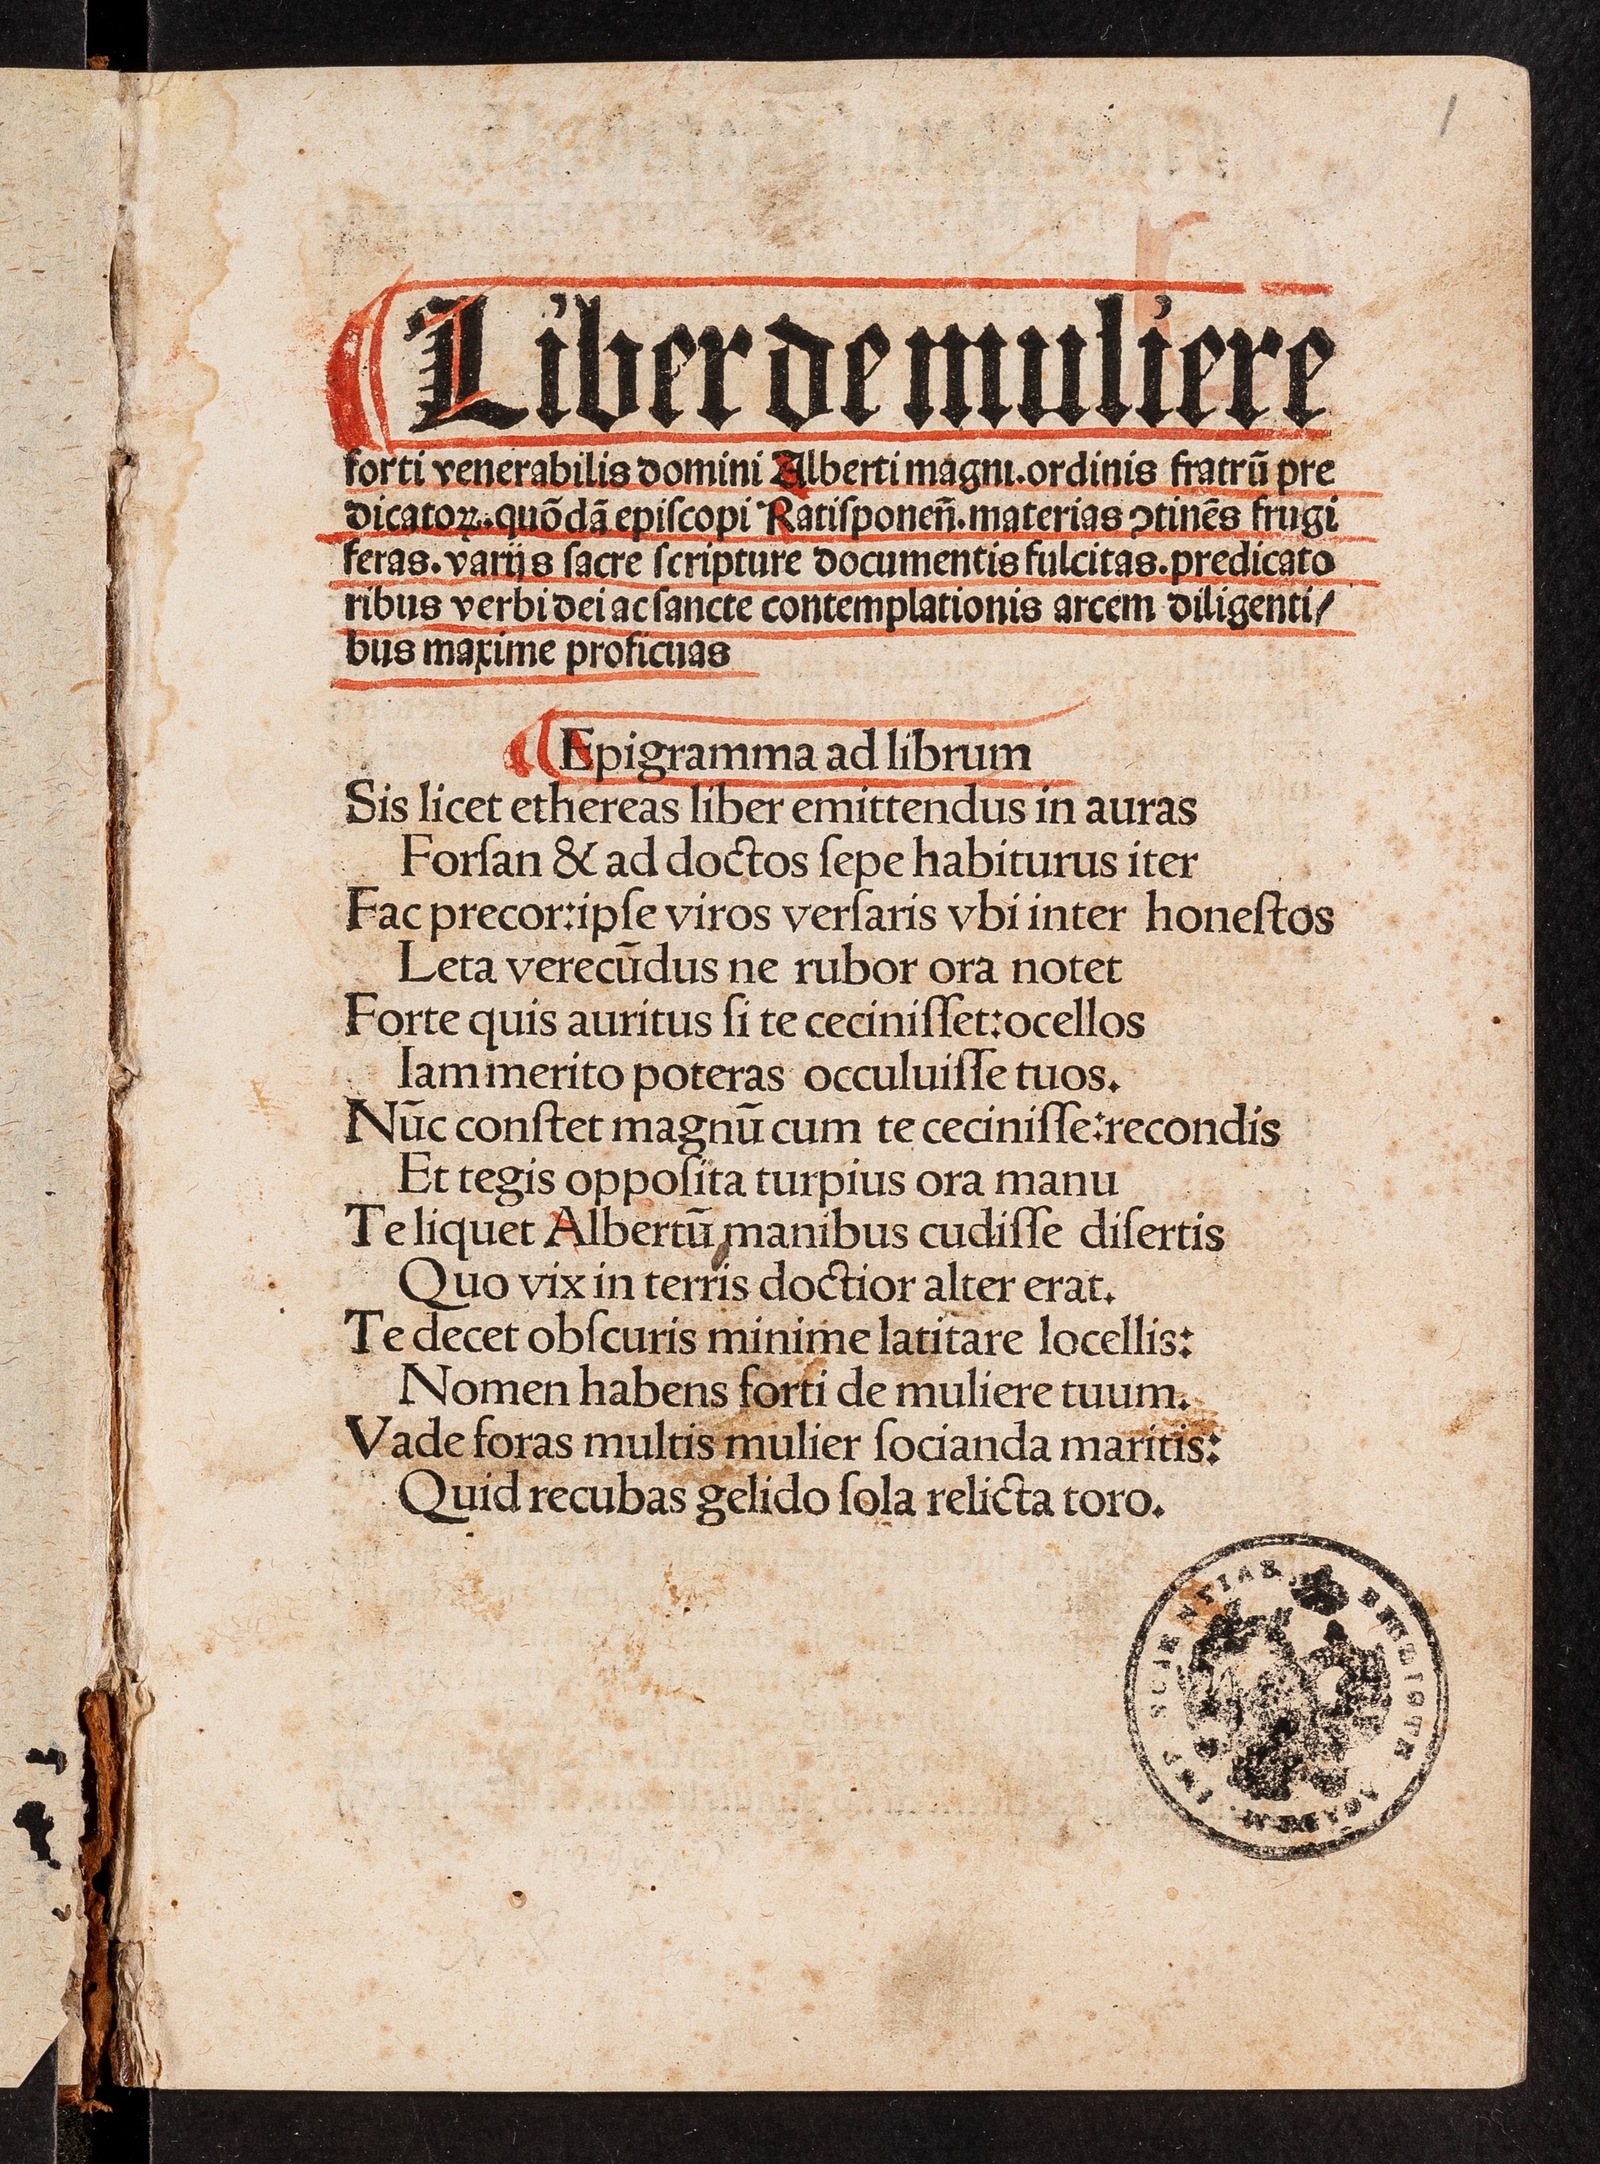 1
Liber de muliere
forti venerabilis domini Alberti magni.ordinis fratrū pre
dicatoꝝ.quōdā epiſcopi Ratiſponen̄.materias ↄtinēs frugi
feras.varijs ſacre ſcripture documentis fulcitas.predicato
ribus verbi dei ac ſancte contemplationis arcem diligenti/
bus maxime proficuas
Epigramma ad librum
Sis licet ethereas liber emittendus in auras
Forſan & ad doctos ſepe habiturus iter
Fac precor:ipſe viros verſaris vbi inter honeſtos
Leta verecūdus ne rubor ora notet
Forte quis auritus ſi te ceciniſſet:ocellos
Iam merito poteras occuluiſſe tuos.
Nūc conſtet magnū cum te ceciniſſe:recondis
Et tegis oppoſita turpius ora manu
Te liquet Albertū manibus cudiſſe diſertis
Quo vix in terris doctior alter erat.
Te decet obſcuris minime latitare locellis:
Nomen habens forti de muliere tuum.
Vade foras multis mulier ſocianda maritis:
Quid recubas gelido ſola relicta toro.